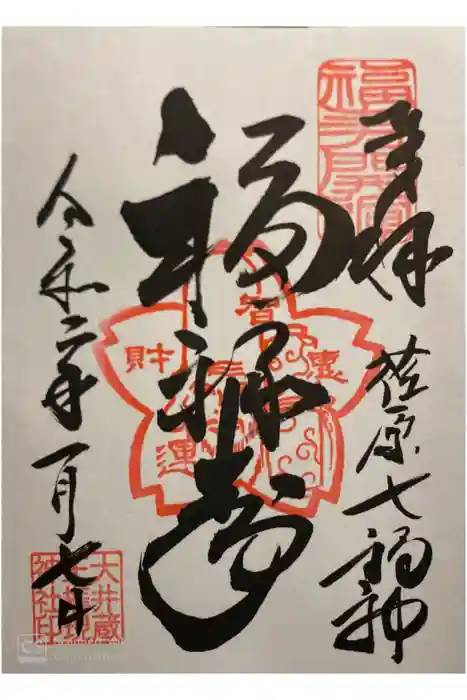 奉拝
佐原七福神
福禄寿
令和二年一月七日
財
運
天井蔵
神社印
CS